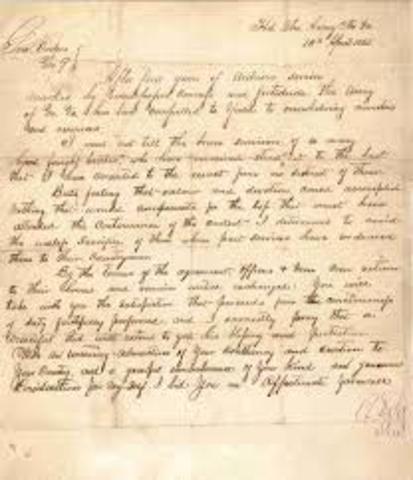 Hd. Qrs. Army No Va
10th April 1865
Genl Orders
No 9
After four years of arduous service
marked by unsurpassed courage and fortitude the Army
of No. Va. has been compelled to yield to overwhelming numbers
and resources.
I need not tell the brave survivors of so many
hard fought battles who have remained steadfast to the last
that I have consented to the result from no distrust of them.
But feeling that valor and devotion could accomplish
nothing that would compensate for the loss that must have
attended the continuance of the contest I determined to avoid
the useless sacrifice of those whose past services have endeared
them to their Countrymen.
By the terms of the agreement Officers & men can return
to their homes and remain until exchanged. You will
take with you the satisfaction that proceeds from the consciousness
of duty faithfully performed, and I earnestly pray that a
merciful God will extend to you his blessing and protection
With an unceasing admiration of your constancy and devotion to
your Country, and a grateful remembrance of your kind and generous
consideration for myself, I bid you an affectionate farewell